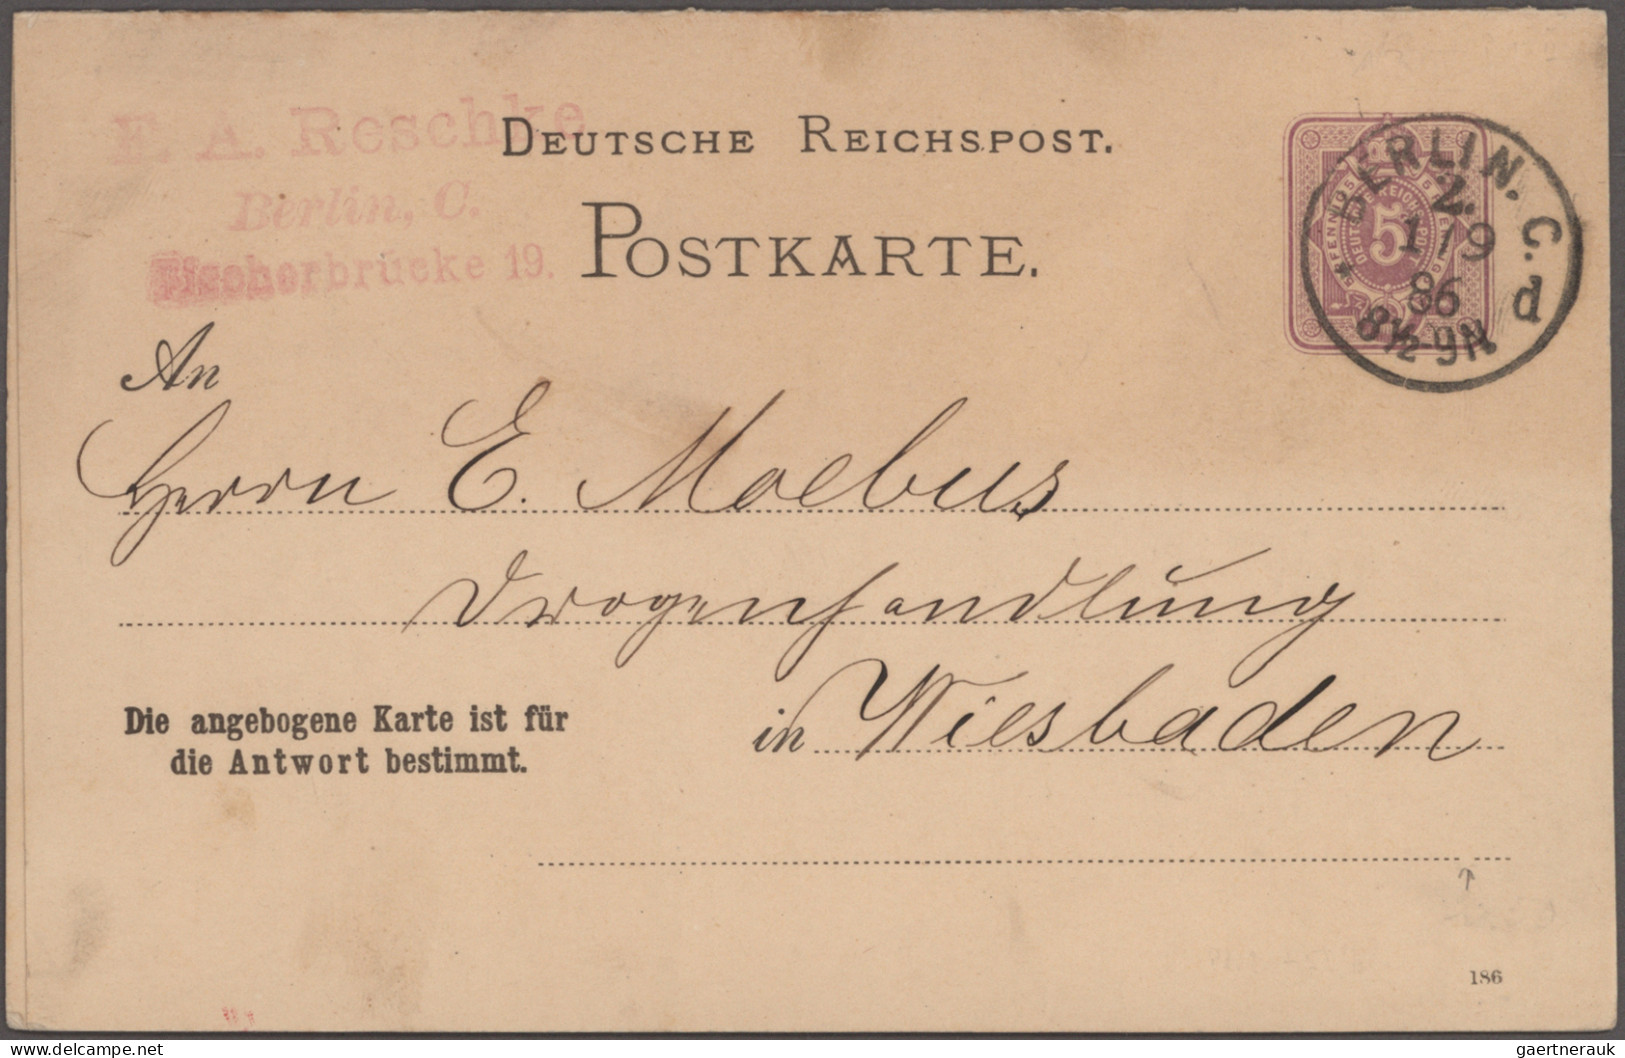 E. A. Reschke
Berlin, C.
Fischerbrücke 19.
DEUTSCHE REICHSPOST.
POSTKARTE.
5
BERLIN. C.
2.
1 / 9
86
8½-9N
d
An
Herrn E. Moebus
Drogenhandlung
in Wiesbaden
Die angebogene Karte ist für
die Antwort bestimmt.
186
delcampe.net
gaertnerauk